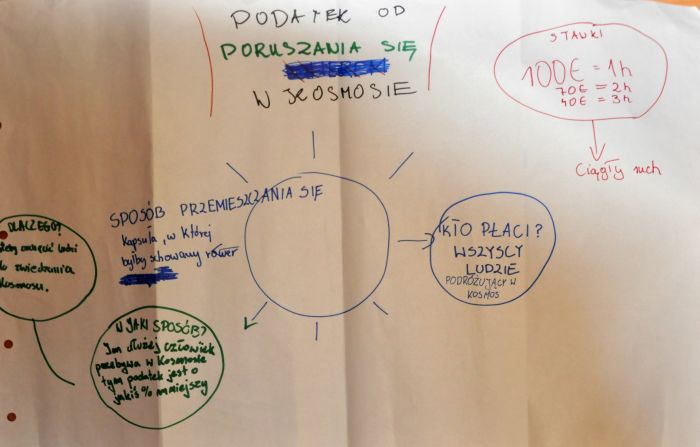 PODATEK OD
PORUSZANIA SIĘ
W KOSMOSIE
STAWKI
100€ = 1h
70€ = 2h
40€ = 3h
Ciągły ruch
SPOSÓB PRZEMIESZCZANIA SIĘ
Kapsuła, w której
byłby schowany rower
KTO PŁACI?
WSZYSCY
LUDZIE
PODRÓŻUJĄCY W
KOSMOS
DLACZEGO?
żeby zachęcić ludzi
do zwiedzania
kosmosu.
W JAKI SPOSÓB?
Im dłużej człowiek
przebywa w Kosmosie
tym podatek jest o
jakiś % mniejszy